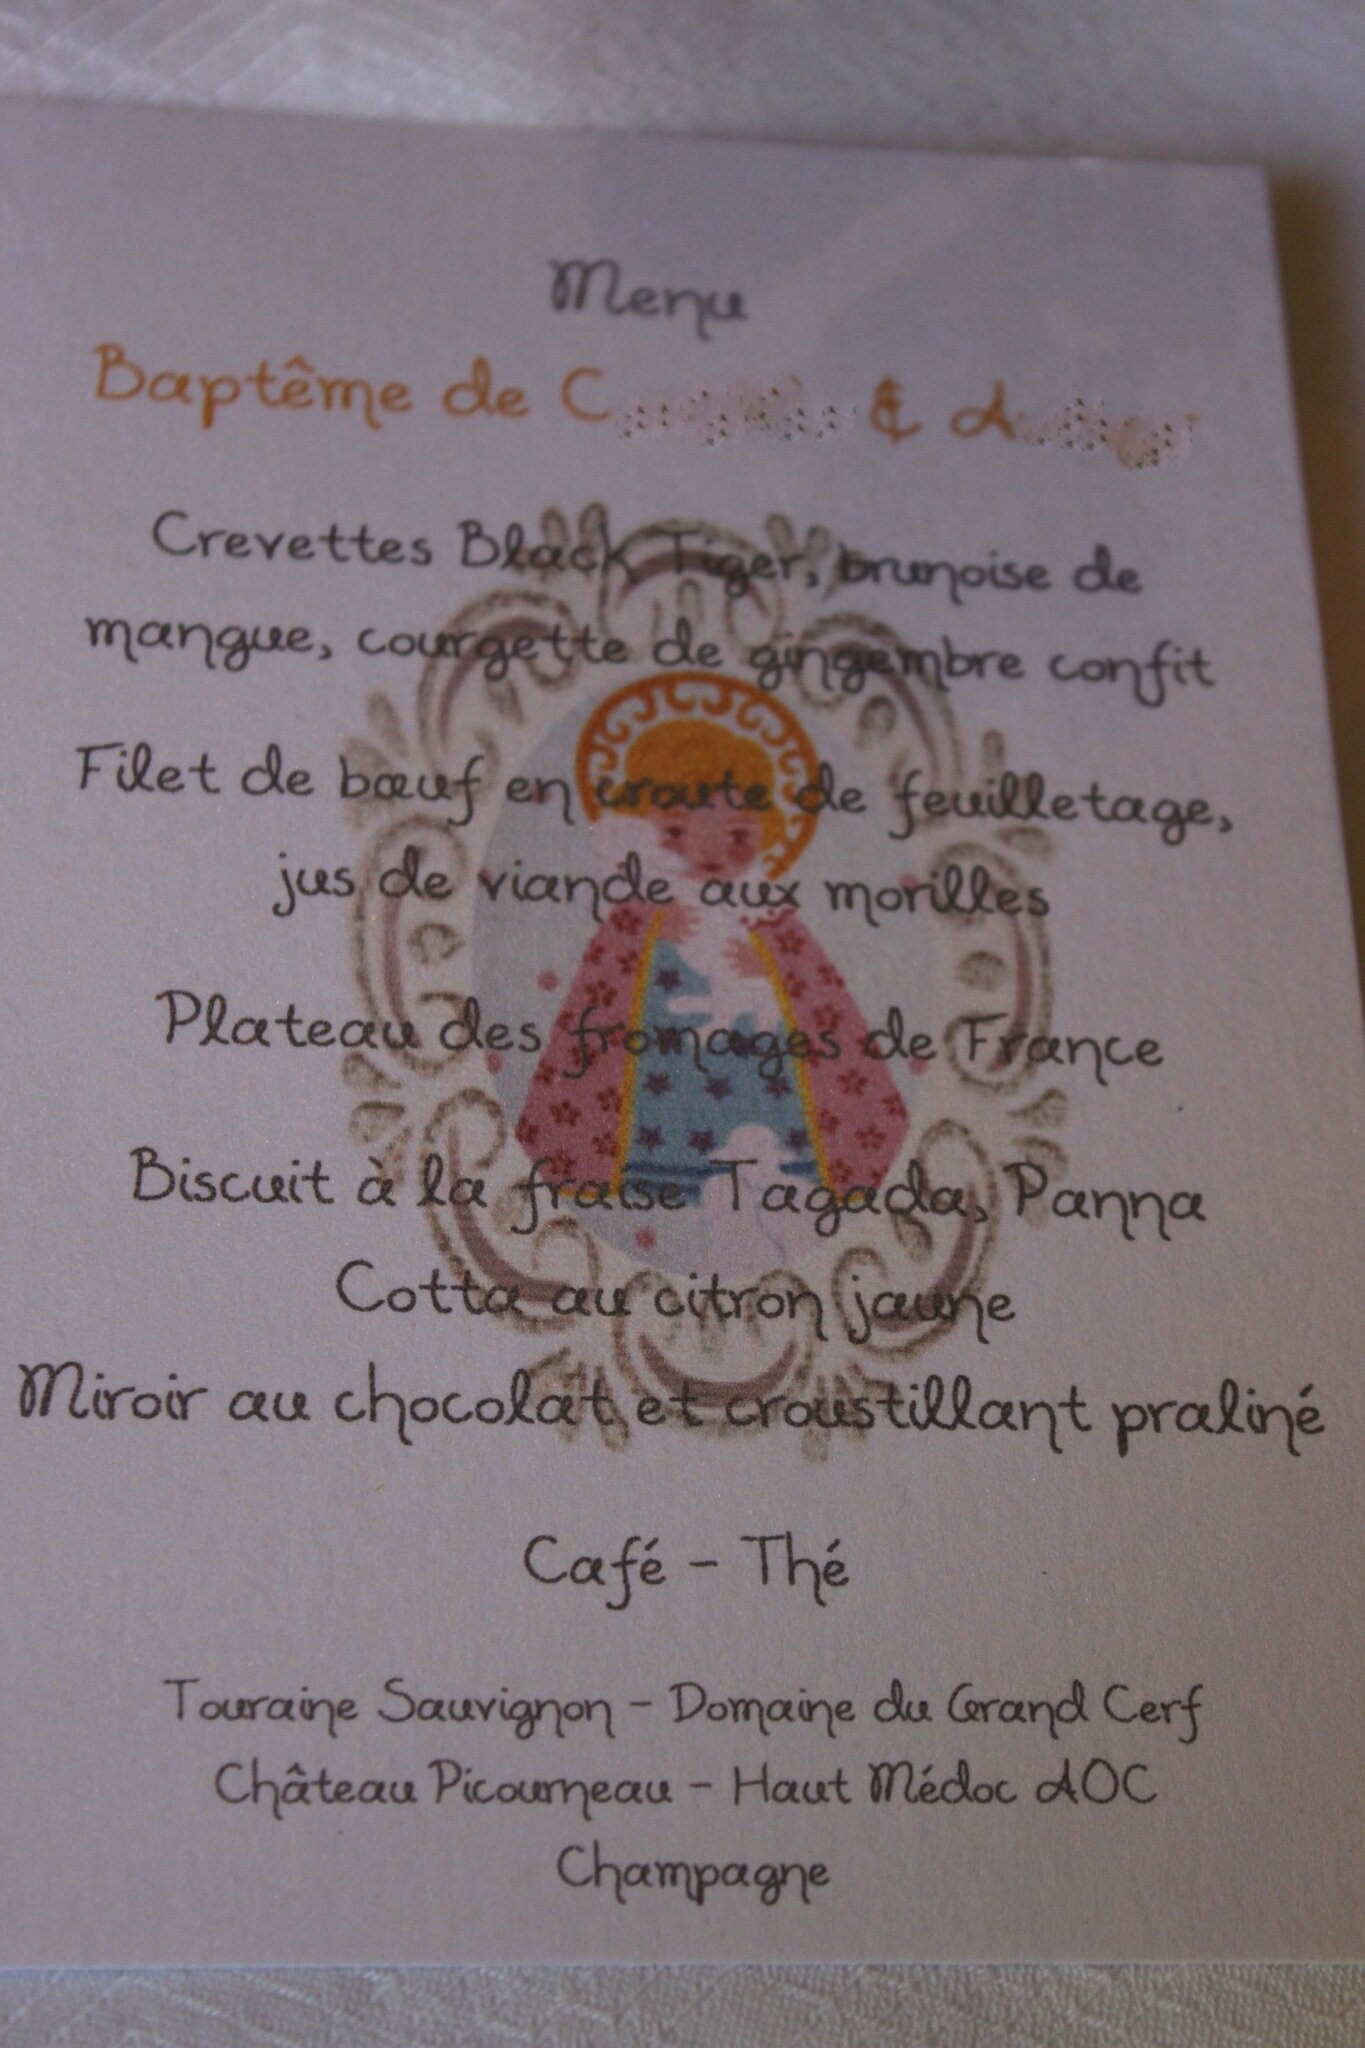 Menu
Baptême de C & A
Crevettes Black Tiger, brunoise de
mangue, courgette de gingembre confit
Filet de bœuf en croute de feuilletage,
jus de viande aux morilles
Plateau des fromages de France
Biscuit à la fraise Tagada, Panna
Cotta au citron jaune
Miroir au chocolat et croustillant praliné
Café - Thé
Touraine Sauvignon - Domaine du Grand Cerf
Château Picourneau - Haut Médoc AOC
Champagne